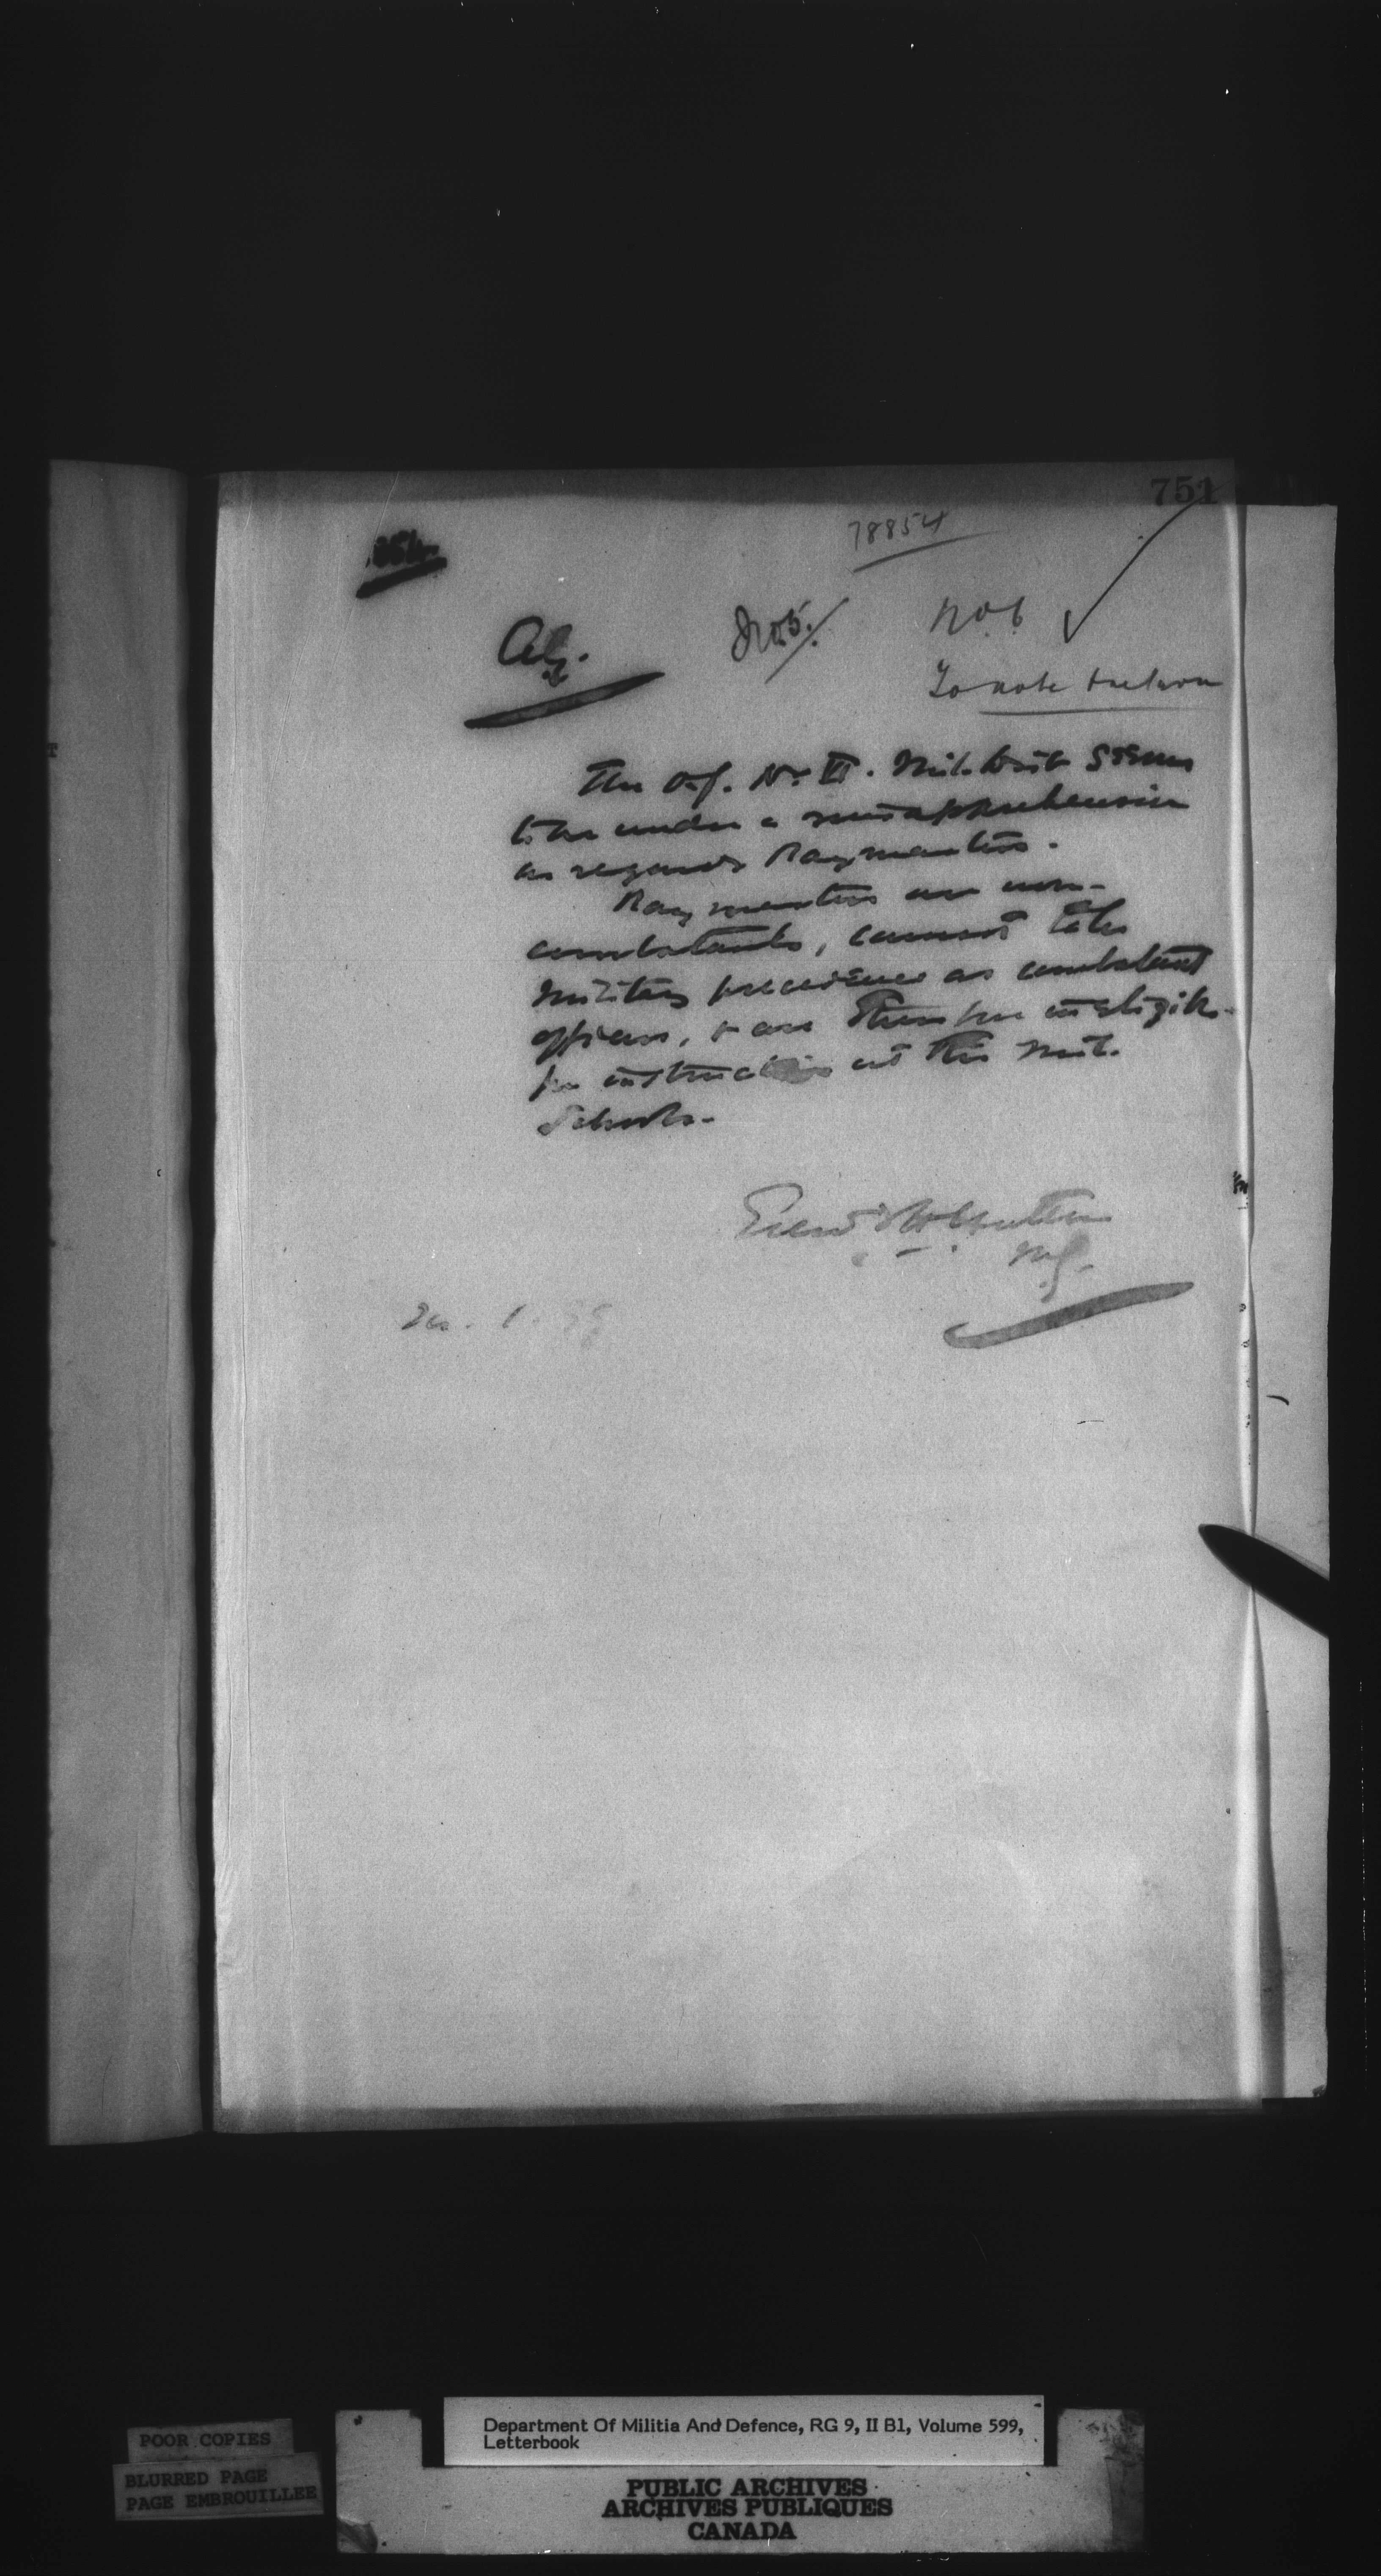 751
78854
A.G.
No 5.
No 6
To note & return
The O.C. No. VI. Mil. Distr seems
to be under a misapprehension
as regards Paymasters.
Paymasters are non-
combatants, cannot take
military precedence as combatant
officers, & are therefore ineligible
for instruction at the Mil.
Schools.
Edward T H Hutton
M.G.
Department Of Militia And Defence, RG 9, II B1, Volume 599,
Letterbook
POOR COPIES
BLURRED PAGE
PAGE EMBROUILLEE
PUBLIC ARCHIVES
ARCHIVES PUBLIQUES
CANADA